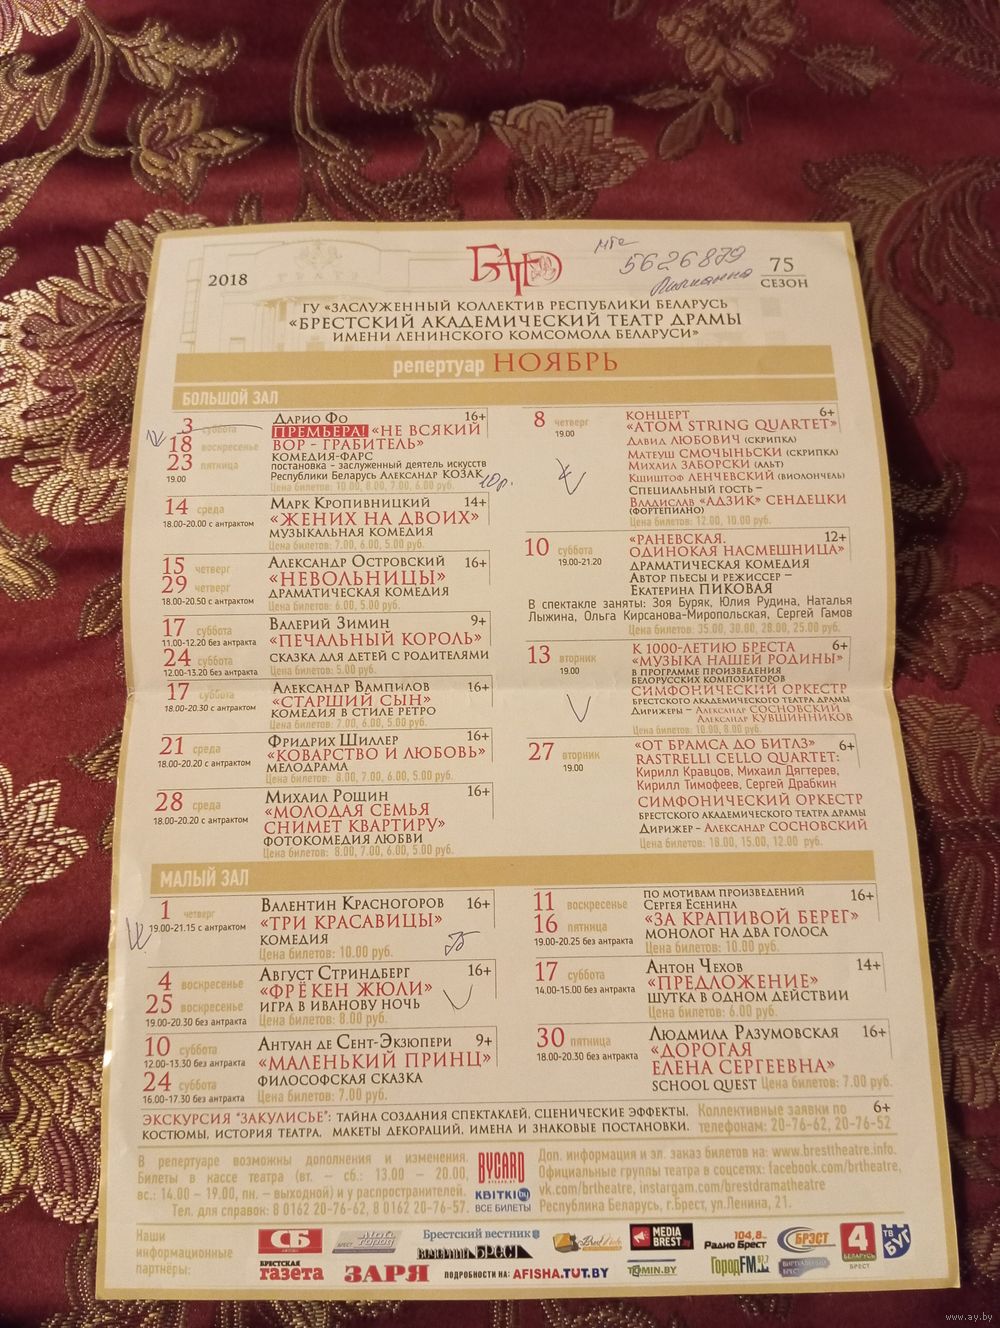 2018
БАТД
мтс
5626879
75
СЕЗОН
ГУ «ЗАСЛУЖЕННЫЙ КОЛЛЕКТИВ РЕСПУБЛИКИ БЕЛАРУСЬ
«БРЕСТСКИЙ АКАДЕМИЧЕСКИЙ ТЕАТР ДРАМЫ
ИМЕНИ ЛЕНИНСКОГО КОМСОМОЛА БЕЛАРУСИ»
репертуар НОЯБРЬ
БОЛЬШОЙ ЗАЛ
3 суббота
18 воскресенье
23 пятница
19.00
ДАРИО ФО 16+
ПРЕМЬЕРА! «НЕ ВСЯКИЙ
ВОР - ГРАБИТЕЛЬ»
КОМЕДИЯ-ФАРС
постановка - заслуженный деятель искусств
Республики Беларусь Александр КОЗАК
Цена билетов: 10.00, 8.00, 7.00, 6.00 руб.
10р.
14 среда
18.00-20.00 с антрактом
МАРК КРОПИВНИЦКИЙ 14+
«ЖЕНИХ НА ДВОИХ»
МУЗЫКАЛЬНАЯ КОМЕДИЯ
Цена билетов: 7.00, 6.00, 5.00 руб.
15 четверг
29 четверг
18.00-20.50 с антрактом
АЛЕКСАНДР ОСТРОВСКИЙ 16+
«НЕВОЛЬНИЦЫ»
ДРАМАТИЧЕСКАЯ КОМЕДИЯ
Цена билетов: 6.00, 5.00 руб.
17 суббота
11.00-12.20 без антракта
24 суббота
12.00-13.20 без антракта
ВАЛЕРИЙ ЗИМИН 9+
«ПЕЧАЛЬНЫЙ КОРОЛЬ»
СКАЗКА ДЛЯ ДЕТЕЙ С РОДИТЕЛЯМИ
Цена билетов: 5.00 руб.
17 суббота
18.00-20.30 с антрактом
АЛЕКСАНДР ВАМПИЛОВ 16+
«СТАРШИЙ СЫН»
КОМЕДИЯ В СТИЛЕ РЕТРО
Цена билетов: 7.00, 6.00, 5.00 руб.
21 среда
18.00-20.20 с антрактом
ФРИДРИХ ШИЛЛЕР 16+
«КОВАРСТВО И ЛЮБОВЬ»
МЕЛОДРАМА
Цена билетов: 8.00, 7.00, 6.00, 5.00 руб.
28 среда
18.00-20.20 с антрактом
МИХАИЛ РОЩИН 16+
«МОЛОДАЯ СЕМЬЯ
СНИМЕТ КВАРТИРУ»
ФОТОКОМЕДИЯ ЛЮБВИ
Цена билетов: 8.00, 7.00, 6.00, 5.00 руб.
8 четверг
19.00
КОНЦЕРТ 6+
«ATOM STRING QUARTET»
ДАВИД ЛЮБОВИЧ (СКРИПКА)
МАТЕУШ СМОЧЫНЬСКИ (СКРИПКА)
МИХАИЛ ЗАБОРСКИ (АЛЬТ)
КШИШТОФ ЛЕНЧЕВСКИЙ (ВИОЛОНЧЕЛЬ)
СПЕЦИАЛЬНЫЙ ГОСТЬ –
ВЛАДИСЛАВ «АДЗИК» СЕНДЕЦКИ
(ФОРТЕПИАНО)
Цена билетов: 12.00, 10.00 руб.
10 суббота
19.00-21.20
«РАНЕВСКАЯ. 12+
ОДИНОКАЯ НАСМЕШНИЦА»
ДРАМАТИЧЕСКАЯ КОМЕДИЯ
АВТОР ПЬЕСЫ И РЕЖИССЕР –
ЕКАТЕРИНА ПИКОВАЯ
В спектакле заняты: Зоя Буряк, Юлия Рудина, Наталья
Лыжина, Ольга Кирсанова-Миропольская, Сергей Гамов
Цена билетов: 35.00, 30.00, 28.00, 25.00 руб.
13 вторник
19.00
К 1000-ЛЕТИЮ БРЕСТА 6+
«МУЗЫКА НАШЕЙ РОДИНЫ»
В ПРОГРАММЕ ПРОИЗВЕДЕНИЯ
БЕЛОРУССКИХ КОМПОЗИТОРОВ
СИМФОНИЧЕСКИЙ ОРКЕСТР
БРЕСТСКОГО АКАДЕМИЧЕСКОГО ТЕАТРА ДРАМЫ
ДИРИЖЕРЫ – АЛЕКСАНДР СОСНОВСКИЙ
АЛЕКСАНДР КУВШИННИКОВ
Цена билетов: 10.00, 8.00 руб.
27 вторник
19.00
«ОТ БРАМСА ДО БИТЛЗ» 6+
RASTRELLI CELLO QUARTET:
Кирилл Кравцов, Михаил Дягтерев,
Кирилл Тимофеев, Сергей Драбкин
СИМФОНИЧЕСКИЙ ОРКЕСТР
БРЕСТСКОГО АКАДЕМИЧЕСКОГО ТЕАТРА ДРАМЫ
ДИРИЖЕР – АЛЕКСАНДР СОСНОВСКИЙ
Цена билетов: 18.00, 15.00, 12.00 руб.
МАЛЫЙ ЗАЛ
1 четверг
19.00-21.15 с антрактом
ВАЛЕНТИН КРАСНОГОРОВ 16+
«ТРИ КРАСАВИЦЫ»
КОМЕДИЯ
Цена билетов: 10.00 руб.
4 воскресенье
25 воскресенье
19.00-20.30 без антракта
АВГУСТ СТРИНДБЕРГ 16+
«ФРЁКЕН ЖЮЛИ»
ИГРА В ИВАНОВУ НОЧЬ
Цена билетов: 8.00 руб.
10 суббота
12.00-13.30 без антракта
24 суббота
16.00-17.30 без антракта
АНТУАН ДЕ СЕНТ-ЭКЗЮПЕРИ 9+
«МАЛЕНЬКИЙ ПРИНЦ»
ФИЛОСОФСКАЯ СКАЗКА
Цена билетов: 7.00 руб.
11 воскресенье
16 пятница
19.00-20.25 без антракта
ПО МОТИВАМ ПРОИЗВЕДЕНИЙ
СЕРГЕЯ ЕСЕНИНА 16+
«ЗА КРАПИВОЙ БЕРЕГ»
МОНОЛОГ НА ДВА ГОЛОСА
Цена билетов: 10.00 руб.
17 суббота
14.00-15.00 без антракта
АНТОН ЧЕХОВ 14+
«ПРЕДЛОЖЕНИЕ»
ШУТКА В ОДНОМ ДЕЙСТВИИ
Цена билетов: 6.00 руб.
30 пятница
18.00-20.30 без антракта
ЛЮДМИЛА РАЗУМОВСКАЯ 16+
«ДОРОГАЯ
ЕЛЕНА СЕРГЕЕВНА»
SCHOOL QUEST Цена билетов: 7.00 руб.
ЭКСКУРСИЯ "ЗАКУЛИСЬЕ": ТАЙНА СОЗДАНИЯ СПЕКТАКЛЕЙ, СЦЕНИЧЕСКИЕ ЭФФЕКТЫ,
КОСТЮМЫ, ИСТОРИЯ ТЕАТРА, МАКЕТЫ ДЕКОРАЦИЙ, ИМЕНА И ЗНАКОВЫЕ ПОСТАНОВКИ.
Коллективные заявки по 6+
телефонам: 20-76-62, 20-76-52
В репертуаре возможны дополнения и изменения.
Билеты в кассе театра (вт. – сб.: 13.00 – 20.00,
вс.: 14.00 – 19.00, пн. – выходной) и у распространителей.
Тел. для справок: 8 0162 20-76-62, 8 0162 20-76-57.
BYCARD
КВІТКІ by
ВСЕ БИЛЕТЫ
Доп. информация и эл. заказ билетов на: www.bresttheatre.info.
Официальные группы театра в соцсетях: facebook.com/brtheatre,
vk.com/brtheatre, instargam.com/brestdramatheatre
Республика Беларусь, г.Брест, ул.Ленина, 21.
Наши
информационные
партнёры:
СБ
Брестский вестник
MEDIA
BREST
104,8
Радио Брест
БРЭСТ
4
БЕЛАРУСЬ
БРЕСТ
ТВ
БУГ
БРЕСТСКАЯ
газета
ЗАРЯ
ВЕЧЕРНИЙ БРЕСТ
ПОДРОБНОСТИ НА: AFISHA.TUT.BY
TOMIN.BY
ГородFM 97,7
ВИРТУАЛЬНЫЙ
БРЕСТ
www.ay.by